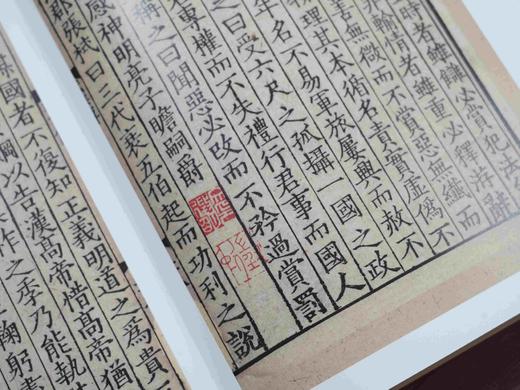 時者雖讎必賞犯法
輸情者雖重必釋游辭
善無微而不賞惡無纖而
物理其本循名責實虛偽不
年名不易軍旅屢興而赦不
之曰受六尺之孤攝一國之政
專權而不失禮行君事而國人
稱之曰聞惡必改而不矜過賞罰
感神明亮子瞻嗣爵
張栻曰三代衰五伯起而功利之說
國者不復知正義明道之為貴
綱以告漢高帝惜高帝猶
作之季乃能執其
鞠躬